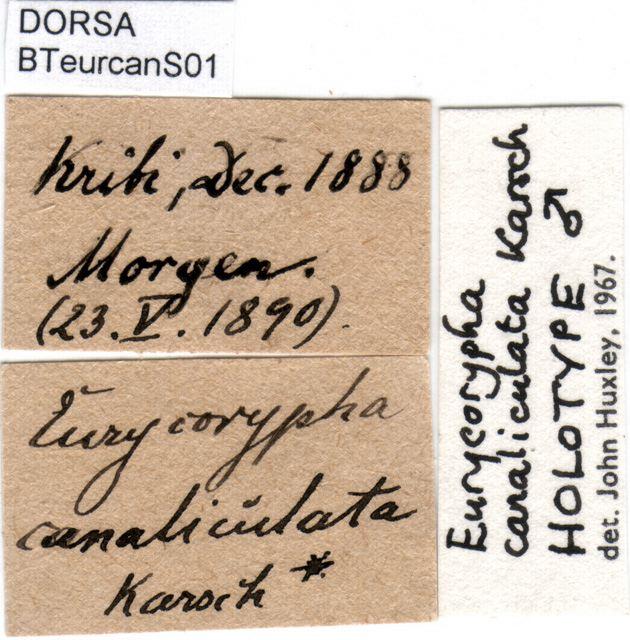 DORSA
BTeurcanS01
Kribi, Dec. 1888
Morgen.
(23. V. 1890).
Eurycorypha
canaliculata
Karsch *
Eurycorypha
canaliculata Karsch
HOLOTYPE ♂
det. John Huxley, 1967.